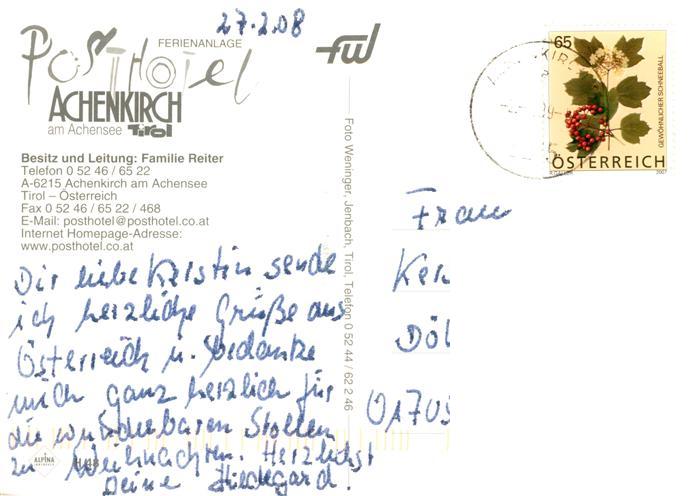 27.2.08
FERIENANLAGE
PostHotel
ACHENKIRCH
am Achensee Tirol
Besitz und Leitung: Familie Reiter
Telefon 0 52 46 / 65 22
A-6215 Achenkirch am Achensee
Tirol – Österreich
Fax 0 52 46 / 65 22 / 468
E-Mail: posthotel@posthotel.co.at
Internet Homepage-Adresse:
www.posthotel.co.at
Dir liebe Kerstin sende
ich herzliche Grüße aus
Österreich u. bedanke
mich ganz herzlich für
die wunderbaren Stollen
zu Weihnachten. Herzlichst
Deine Hildegard.
ALPINA
fwd
Foto Weninger, Jenbach, Tirol, Telefon 0 52 44 / 62 2 46
65
GEWÖHNLICHER SCHNEEBALL
ÖSTERREICH
2007
Frau
Ker
Döl
0170